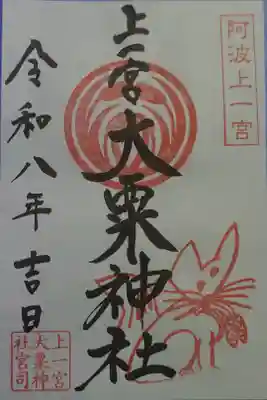 阿波上一宮
上一宮大粟神社
令和八年吉日
上一宮
大粟神
社宮司